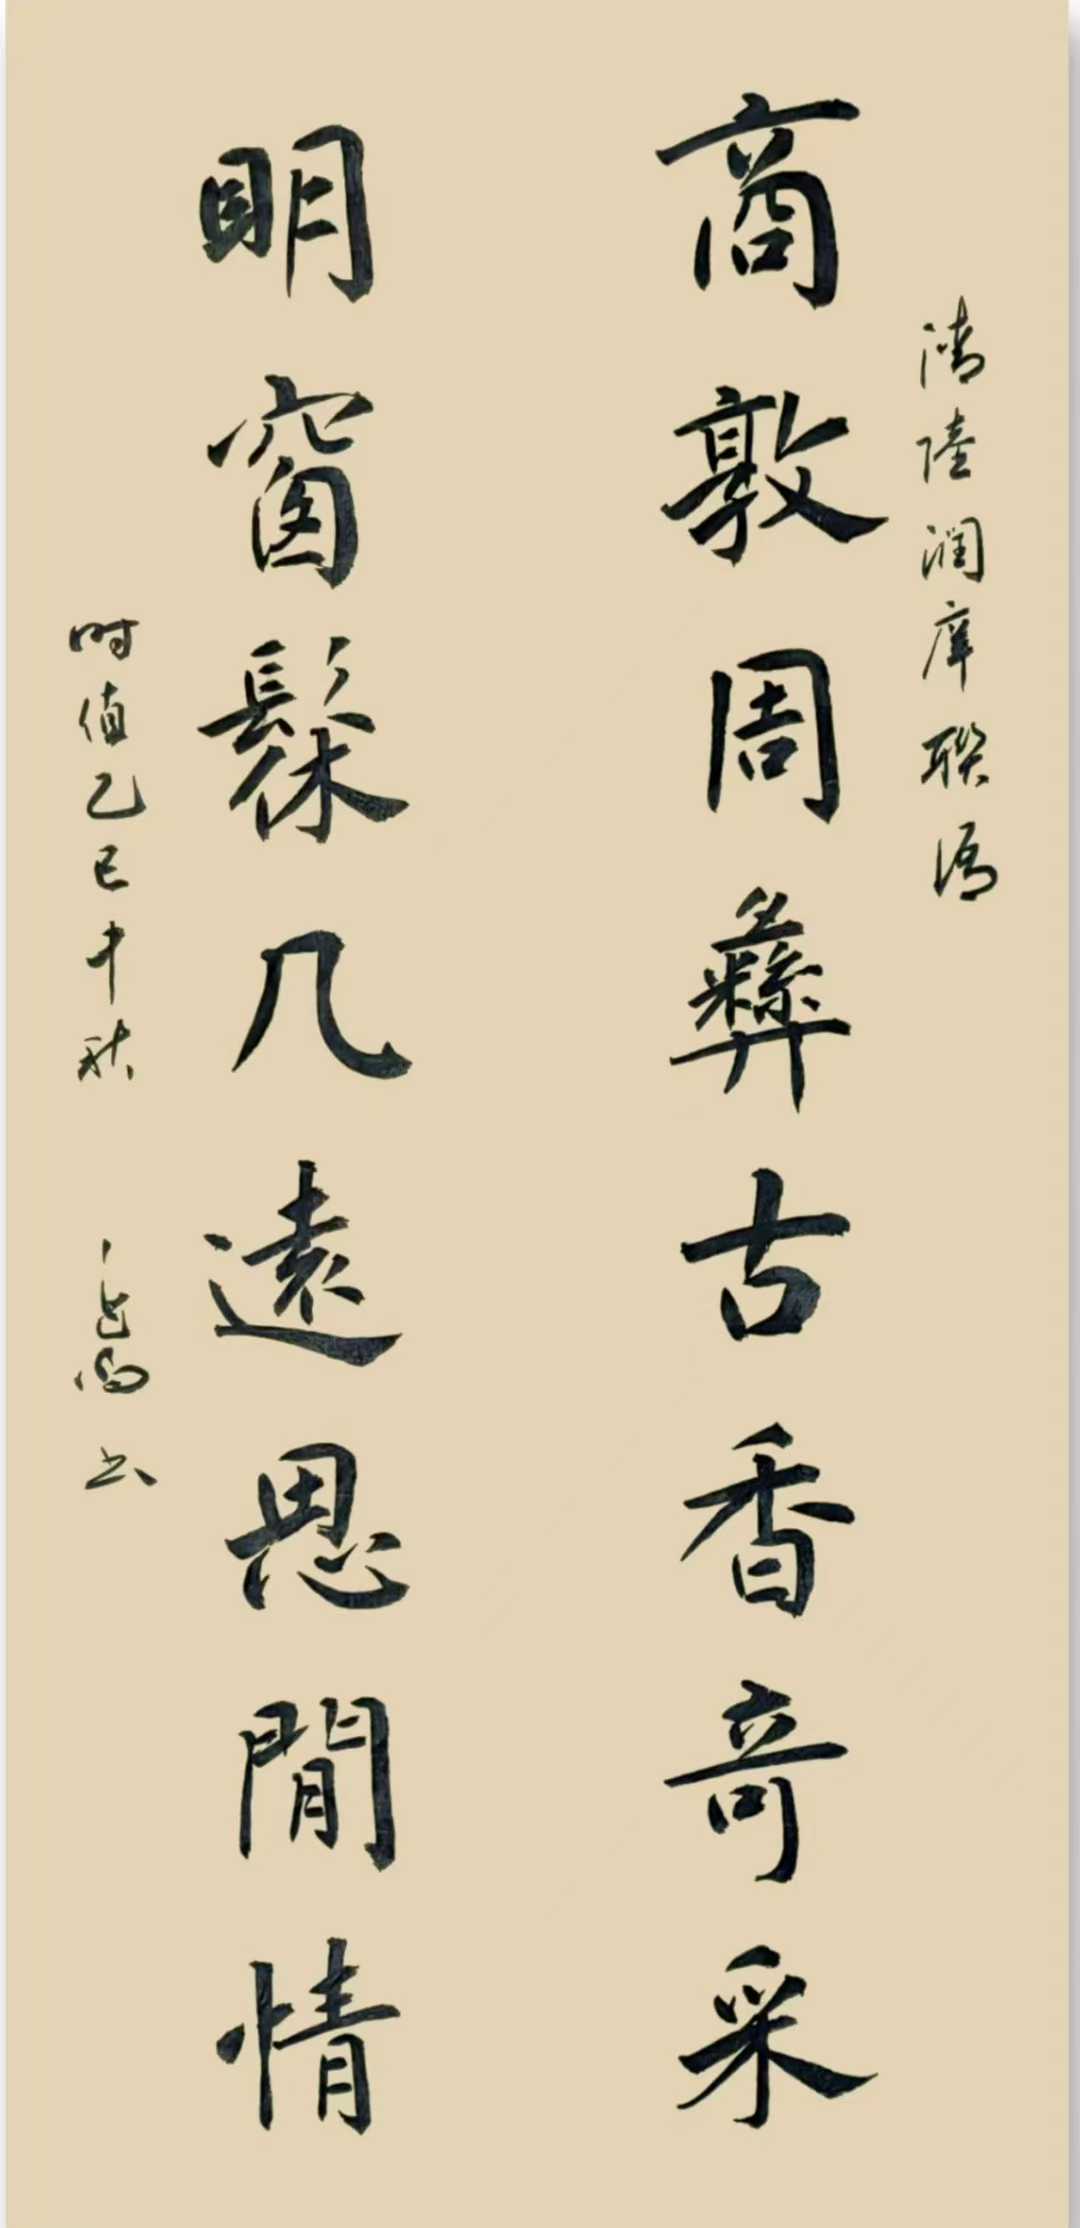 清陸潤庠聯语
商敦周彝古香奇采
明窗髹几遠思閒情
时值乙巳中秋
书